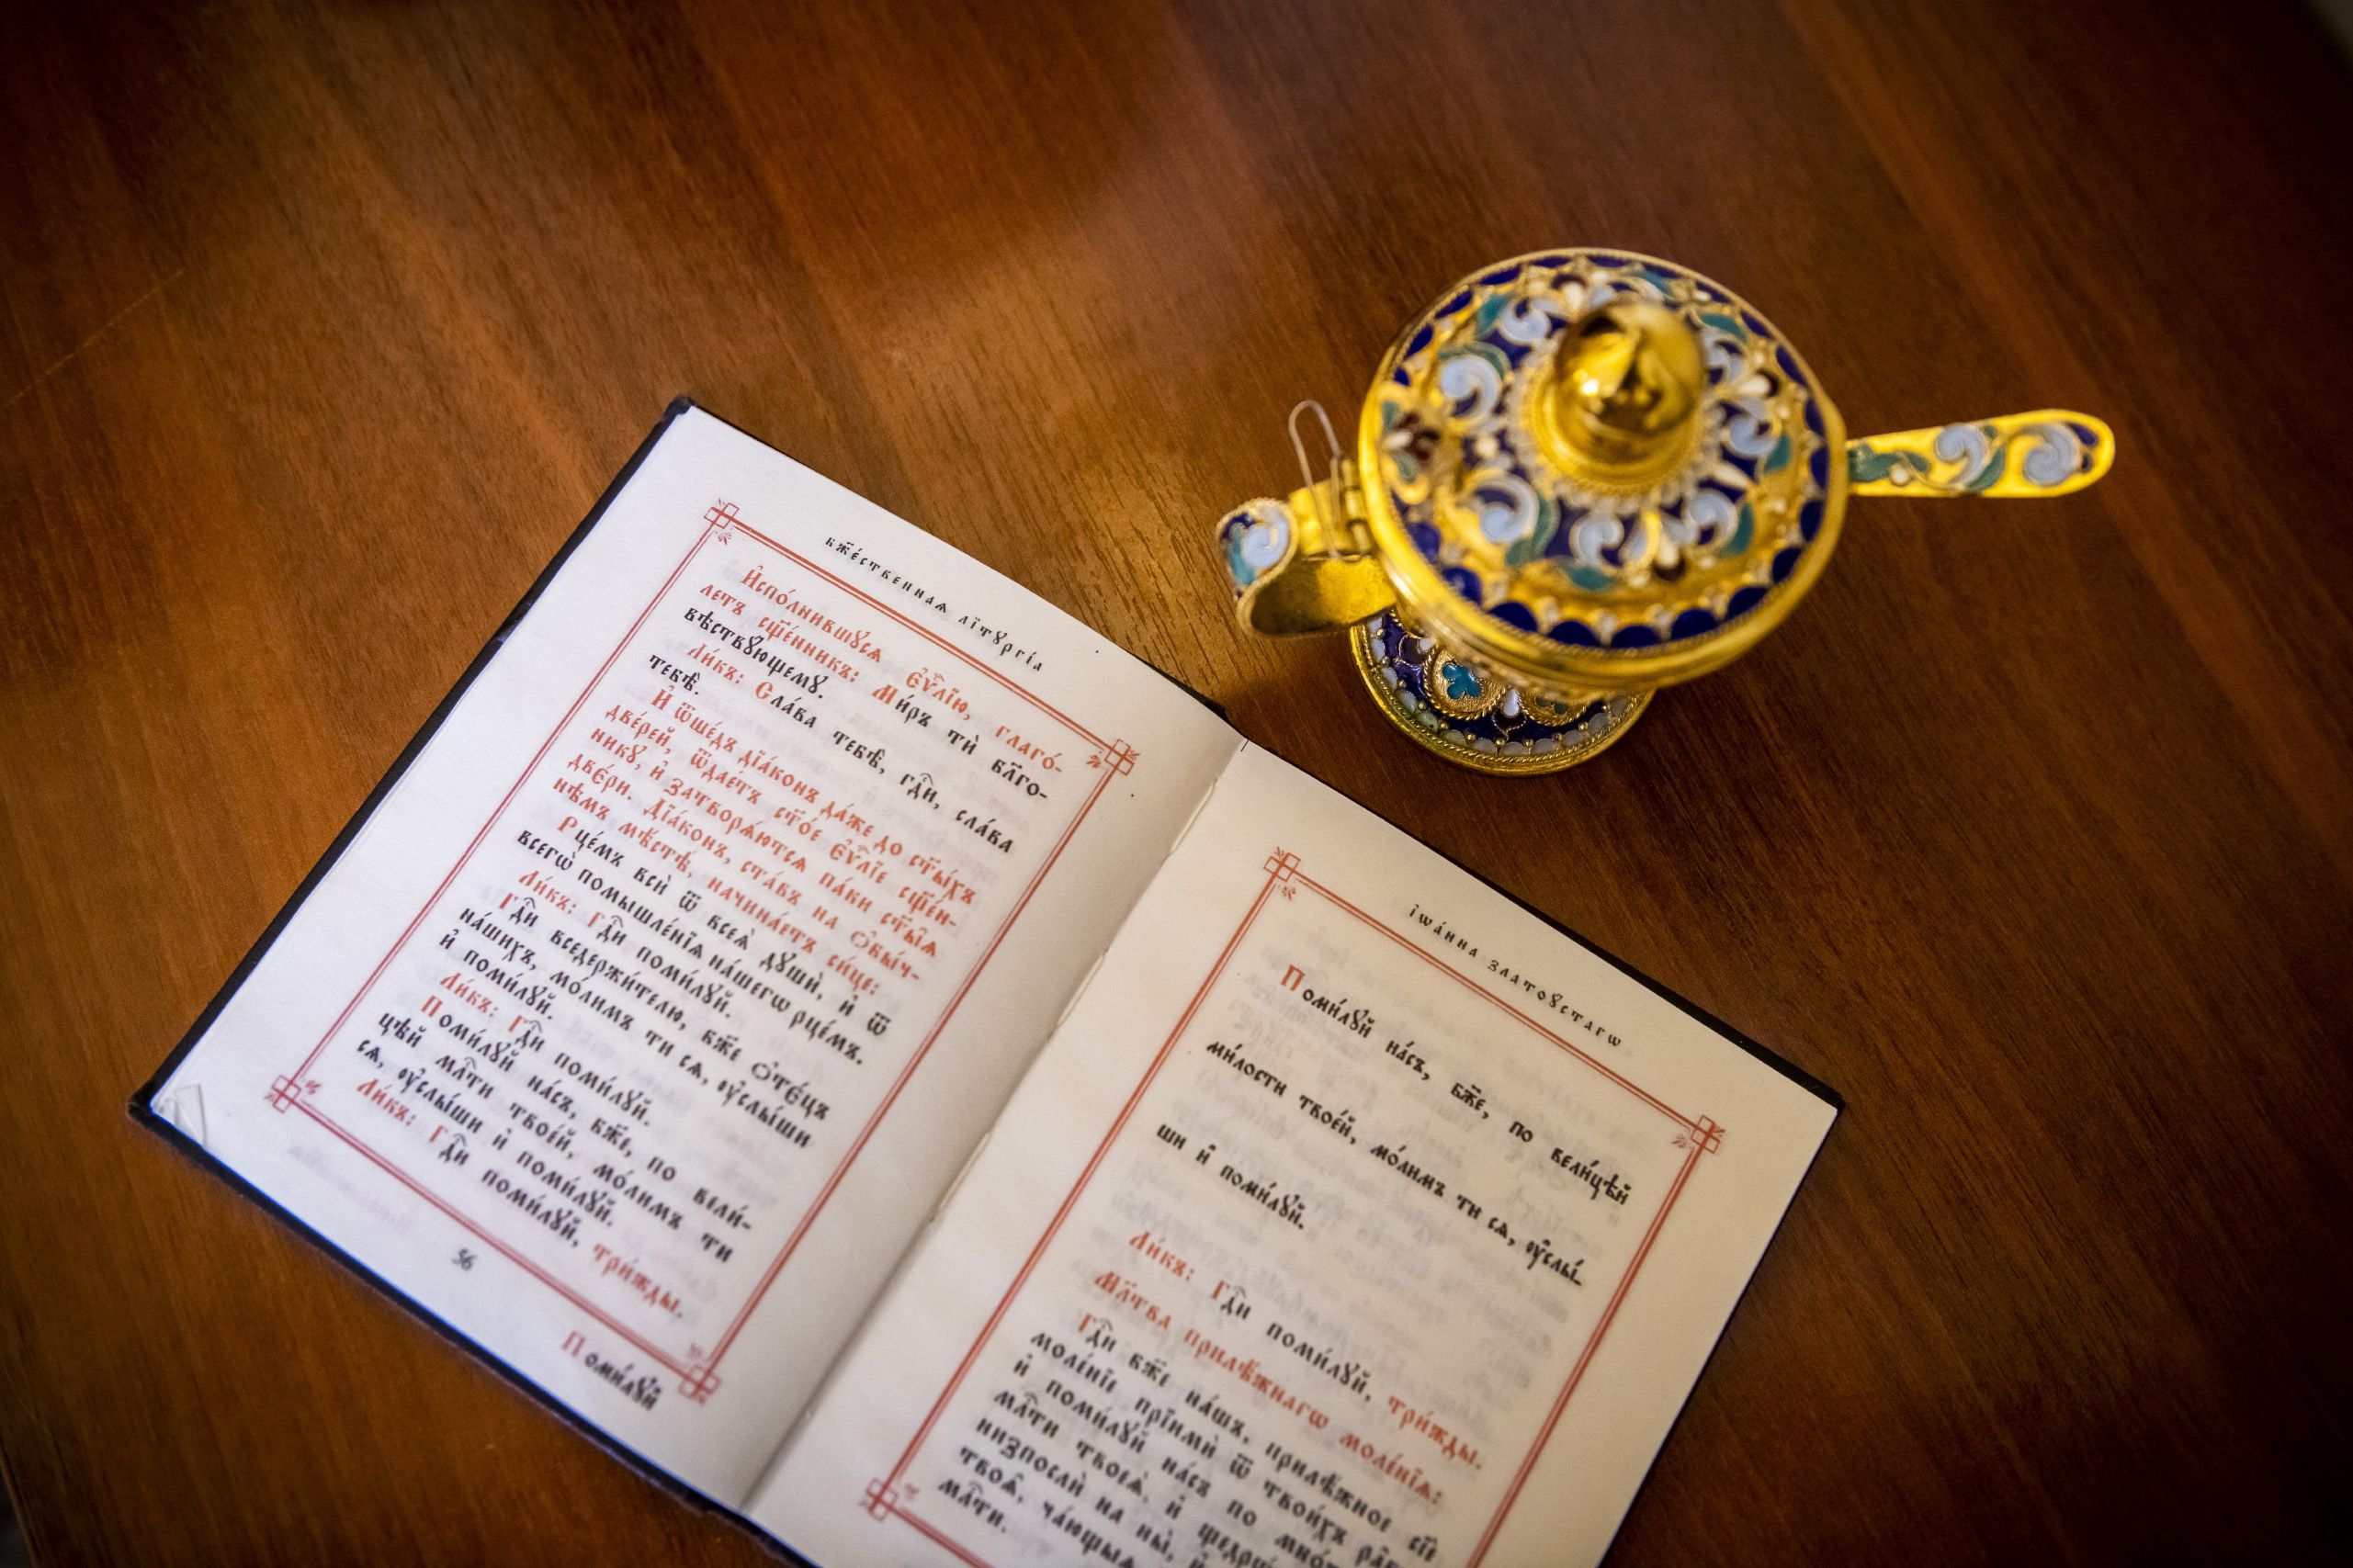 бж҃е́ственнаѧ лїтꙋргі́а
И҆спо́лнившꙋсѧ є҆ѵⷢ҇лїю, глаго́-
летъ сщ҃е́нникъ: Ми́ръ тѝ бл҃го-
вѣствꙋющемꙋ.
Ли́къ: Сла́ва тебѣ̀, гдⷭ҇и, сла́ва
тебѣ̀.
И҆ ѿше́дъ дїа́конъ да́же до ст҃ы́хъ
две́рей, ѿдае́тъ ст҃о́е є҆ѵⷢ҇лїе сщ҃е́н-
никꙋ, и҆ затворѧ́ютсѧ па́ки ст҃ы̑ѧ
двє́ри. Дїа́конъ, ста́въ на ѻ҆бы́ч-
нѣмъ мѣ́стѣ, начина́етъ си́це:
Рце́мъ всѝ ѿ всеѧ̀ дꙋшѝ, и҆ ѿ
всегѡ̀ помышле́нїѧ на́шегѡ рце́мъ.
Ли́къ: Гдⷭ҇и поми́лꙋй.
Гдⷭ҇и вседержи́телю, бж҃е ѻ҆тє́цъ
на́шихъ, мо́лимъ ти сѧ, ᲂу҆слы́ши
и҆ поми́лꙋй.
Ли́къ: Гдⷭ҇и поми́лꙋй.
Поми́лꙋй на́съ, бж҃е, по вели́-
цѣй млⷭ҇ти твое́й, мо́лимъ ти
сѧ, ᲂу҆слы́ши и҆ поми́лꙋй.
Ли́къ: Гдⷭ҇и поми́лꙋй, три́жды.
56
Поми́лꙋй
і҆ѡа́нна златоꙋстагѡ
Поми́лꙋй на́съ, бж҃е, по вели́цѣй
ми́лости твое́й, мо́лимъ ти сѧ, ᲂу҆слы́-
ши и҆ поми́лꙋй.
Ли́къ: Гдⷭ҇и поми́лꙋй, три́жды.
Мл҃тва прилѣ́жнагѡ моле́нїѧ:
Гдⷭ҇и бж҃е на́шъ, прилѣ́жное сїѐ
моле́нїе прїимѝ ѿ твои́хъ ра̑бъ
и҆ поми́лꙋй на́съ по мно́
млⷭ҇ти твоеѧ̀, и҆ щедрѡ́
низпослѝ на ны̀, и҆
твоѧ̑, ча́ющыѧ
млⷭ҇ти.